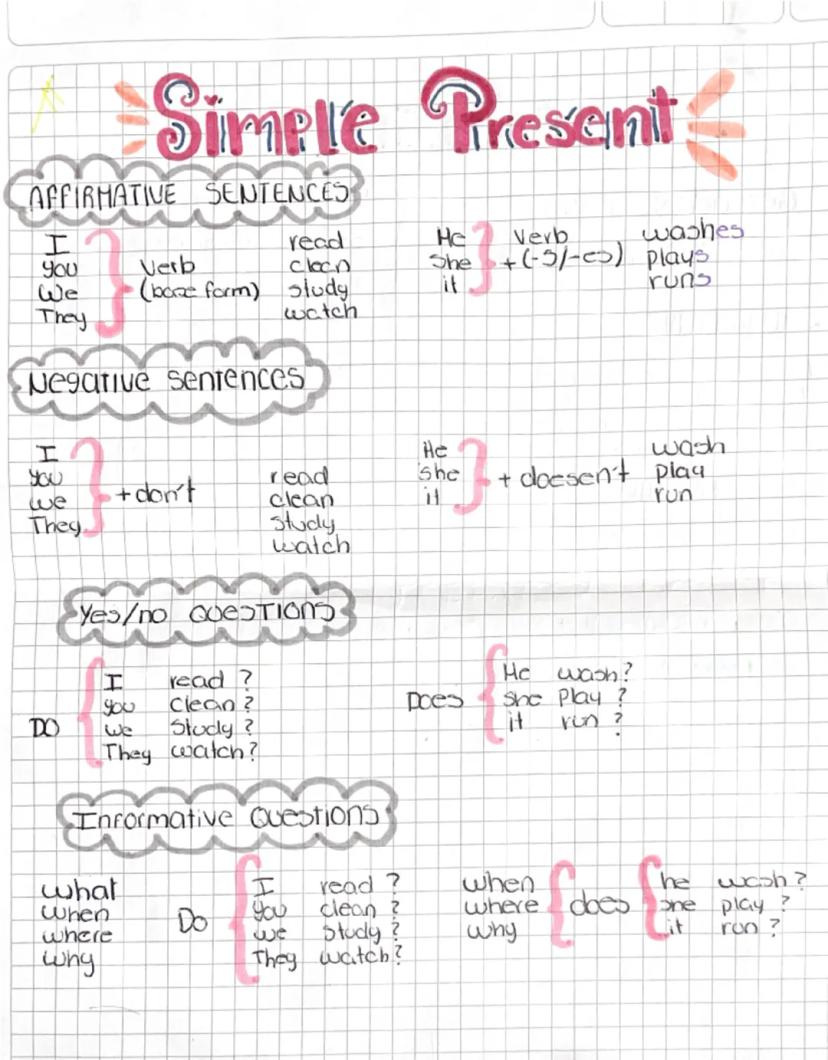 Simple Present
AFFIRMATIVE SENTENCES
I
you
We
They
Verb
(base form)
read
clean
study
watch
He
she
it
Verb
+(-s/-es)
washes
plays
runs
Negative sentences
I
you
we
They
+don't
read
clean
study
watch
He
she
it
+ doesen't
wash
play
run
Yes/no QUESTIONS
DO
I read ?
you clean ?
we study ?
They watch ?
DOES
He wash?
she play ?
it run ?
Informative QUESTIONS
what
when
where
why
DO
I read ?
you clean ?
we study ?
They watch?
when
where
why
does
he wash ?
she play ?
it run ?